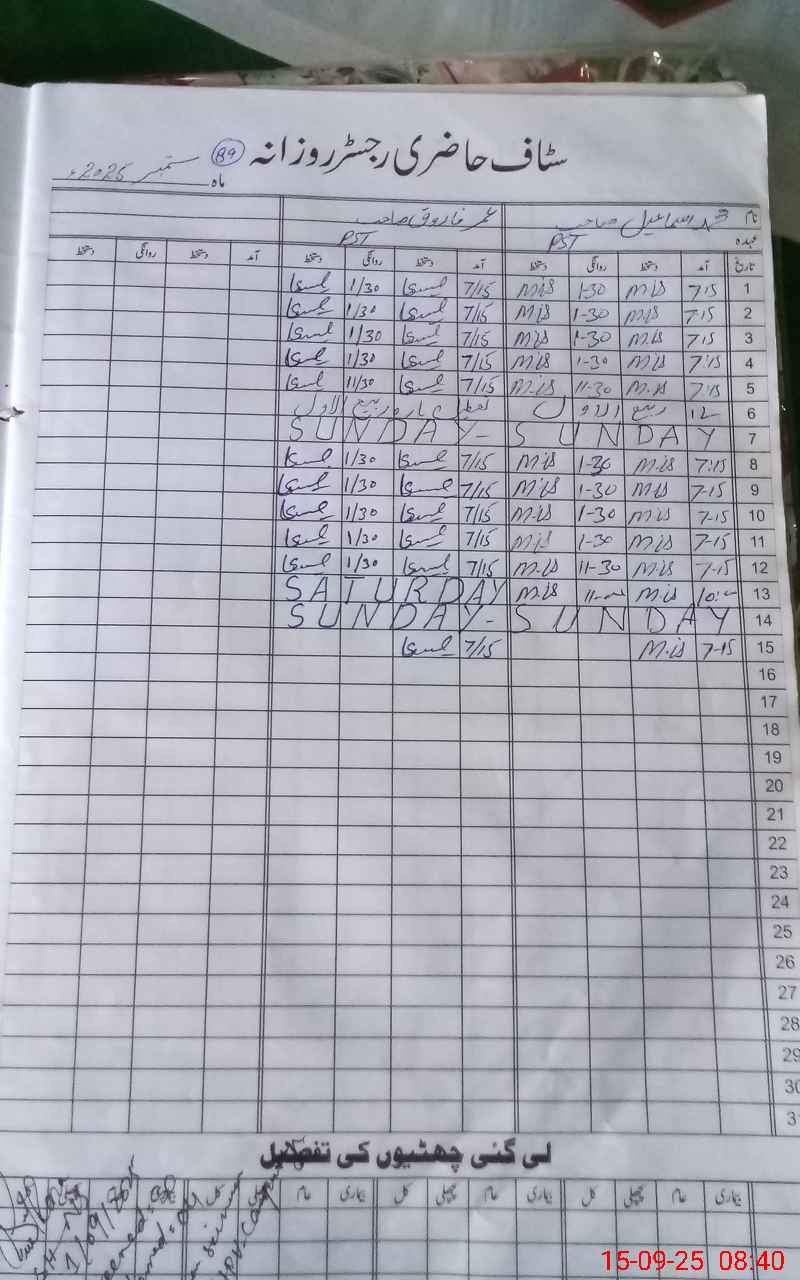 سٹاف حاضری رجسٹر روزانہ
89
ماہ ستمبر 2025ء
نام محمد اسماعیل صاحب عمر فاروق صاحب
عہدہ PST PST
تاریخ آمد دستخط روانگی دستخط آمد دستخط روانگی دستخط آمد دستخط روانگی دستخط
1 7-15 M.iS 1-30 M.iS 7/15 1/30
2 7-15 M.iS 1-30 M.iS 7/15 1/30
3 7-15 M.iS 1-30 M.iS 7/15 1/30
4 7:15 M.iS 1-30 M.iS 7/15 1/30
5 7-15 M.iS 11-30 M.iS 7/15 11/30
6 12 ربیع الاول ربیع الاول
7 SUNDAY - SUNDAY
8 7:15 M.iS 1-30 M.iS 7/15 1/30
9 7-15 M.iS 1-30 M.iS 7/15 1/30
10 7-15 M.iS 1-30 M.iS 7/15 1/30
11 7-15 M.iS 1-30 M.iS 7/15 1/30
12 7-15 M.iS 11-30 M.iS 7/15 1/30
13 M.iS M.iS SATURDAY
14 SUNDAY - SUNDAY
15 7-15 M.iS 7/15
16
17
18
19
20
21
22
23
24
25
26
27
28
29
30
31
لی گئی چھٹیوں کی تفصیل
بیماری عام پچھلی کل بیماری عام پچھلی کل بیماری عام
15-09-25 08:40